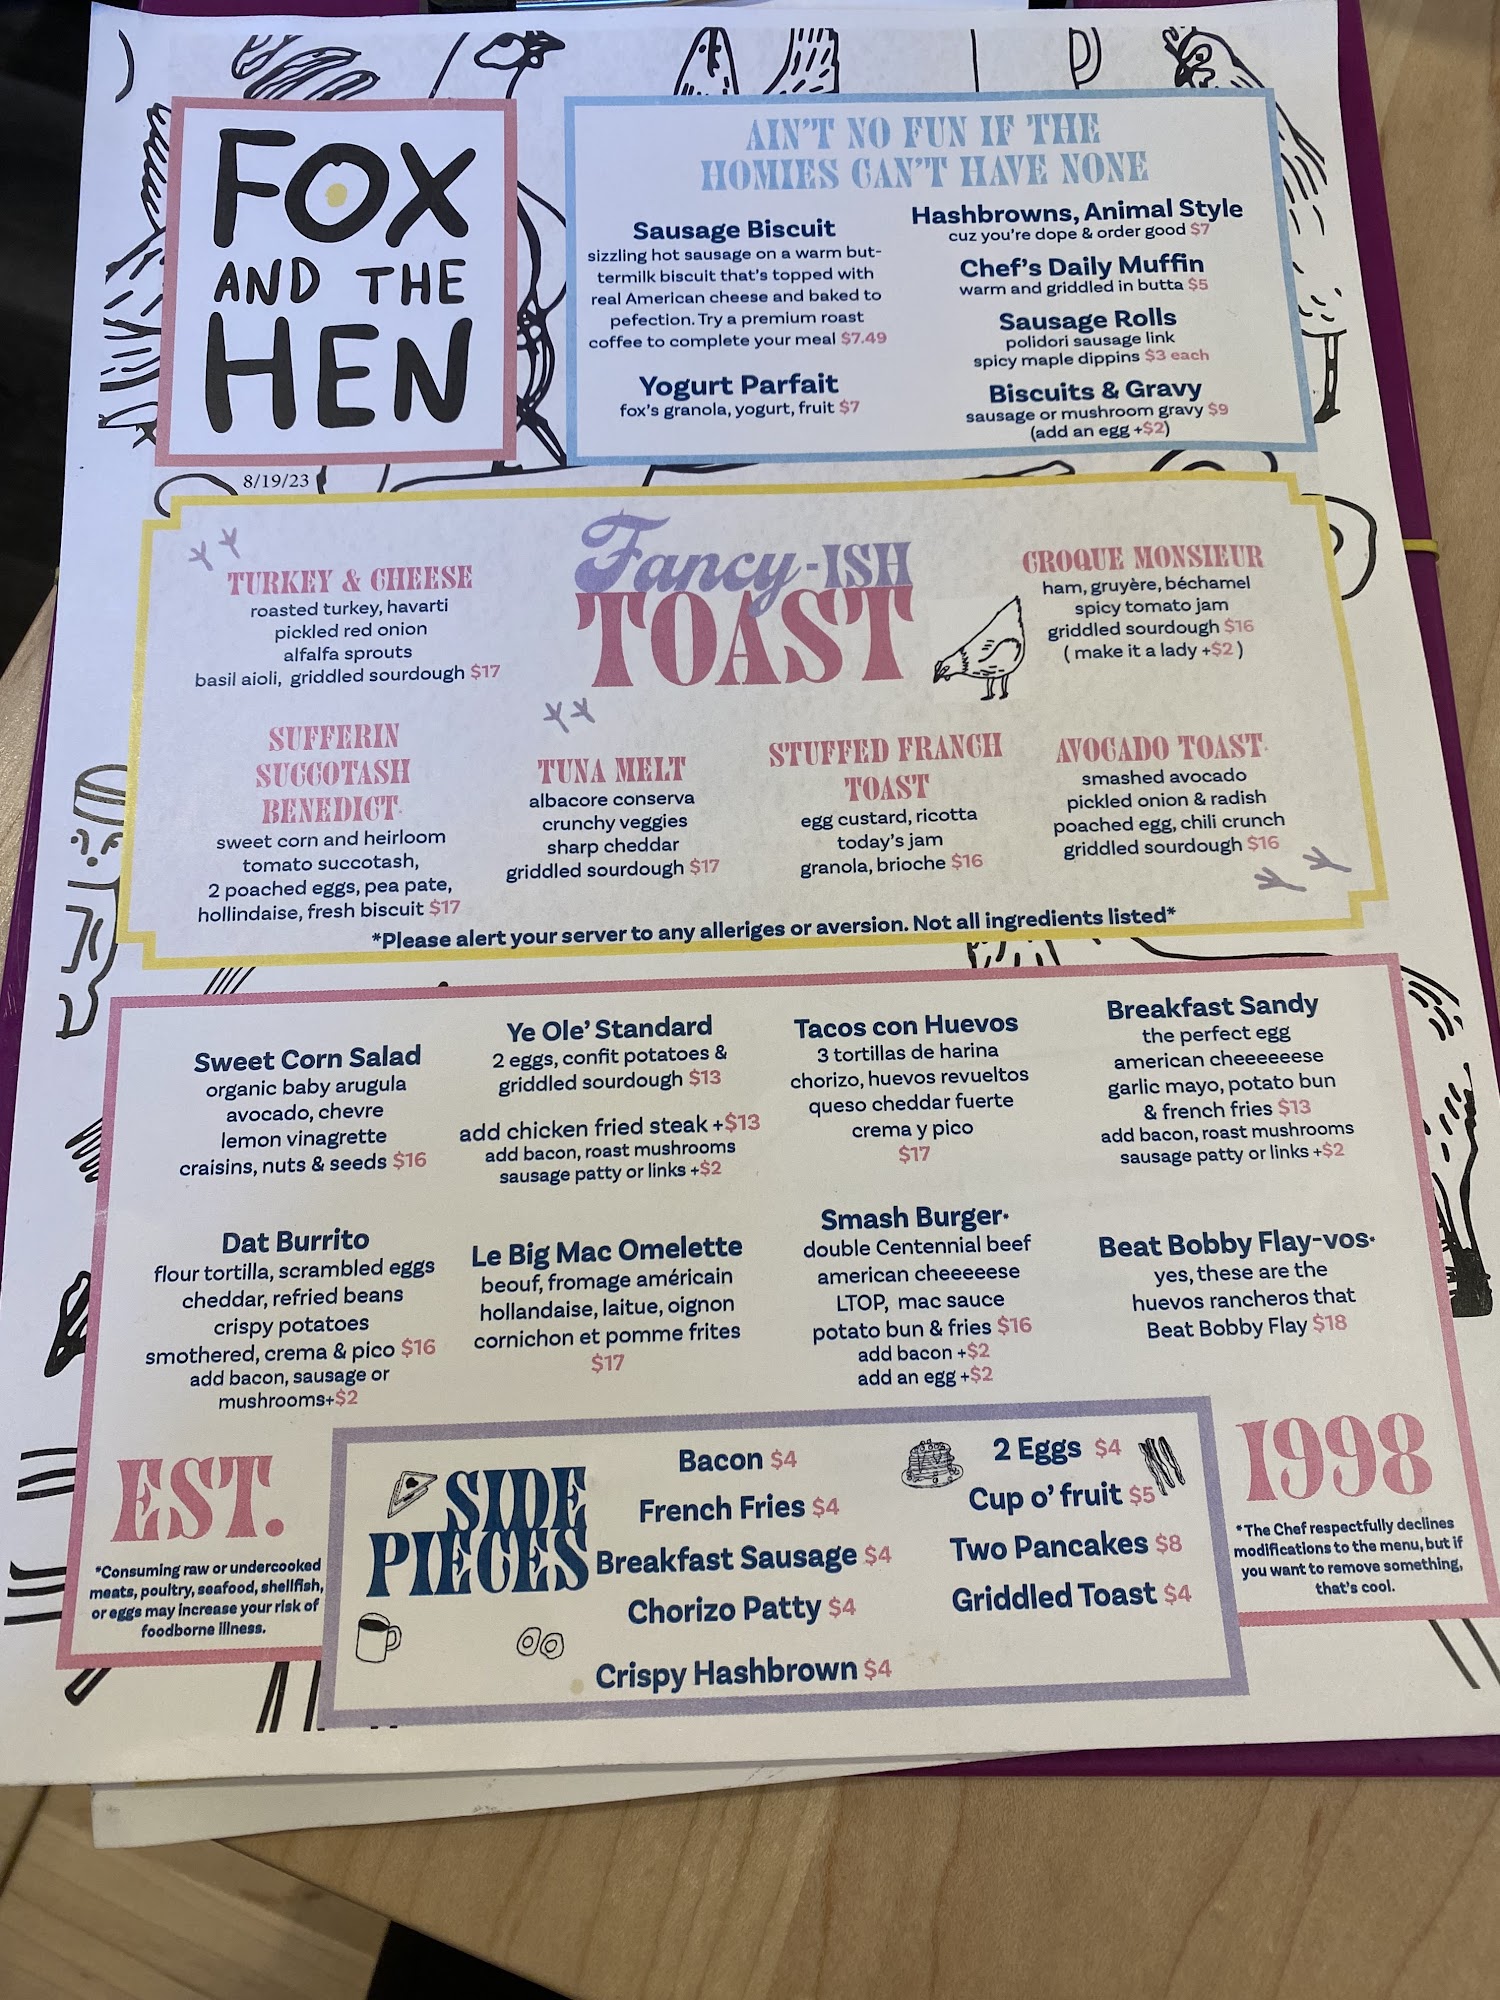 FOX
AND THE
HEN
8/19/23
AIN'T NO FUN IF THE
HOMIES CAN'T HAVE NONE
Sausage Biscuit
sizzling hot sausage on a warm but-
termilk biscuit that's topped with
real American cheese and baked to
pefection. Try a premium roast
coffee to complete your meal $7.49
Yogurt Parfait
fox's granola, yogurt, fruit $7
Hashbrowns, Animal Style
cuz you're dope & order good $7
Chef's Daily Muffin
warm and griddled in butta $5
Sausage Rolls
polidori sausage link
spicy maple dippins $3 each
Biscuits & Gravy
sausage or mushroom gravy $9
(add an egg +$2)
Fancy-ISH
TOAST
TURKEY & CHEESE
roasted turkey, havarti
pickled red onion
alfalfa sprouts
basil aioli, griddled sourdough $17
CROQUE MONSIEUR
ham, gruyère, béchamel
spicy tomato jam
griddled sourdough $16
( make it a lady +$2 )
SUFFERIN
SUCCOTASH
BENEDICT*
sweet corn and heirloom
tomato succotash,
2 poached eggs, pea pate,
hollindaise, fresh biscuit $17
TUNA MELT
albacore conserva
crunchy veggies
sharp cheddar
griddled sourdough $17
STUFFED FRANCH
TOAST
egg custard, ricotta
today's jam
granola, brioche $16
AVOCADO TOAST*
smashed avocado
pickled onion & radish
poached egg, chili crunch
griddled sourdough $16
*Please alert your server to any alleriges or aversion. Not all ingredients listed*
Sweet Corn Salad
organic baby arugula
avocado, chevre
lemon vinagrette
craisins, nuts & seeds $16
Ye Ole' Standard
2 eggs, confit potatoes &
griddled sourdough $13
add chicken fried steak +$13
add bacon, roast mushrooms
sausage patty or links +$2
Tacos con Huevos
3 tortillas de harina
chorizo, huevos revueltos
queso cheddar fuerte
crema y pico
$17
Breakfast Sandy
the perfect egg
american cheeeeeese
garlic mayo, potato bun
& french fries $13
add bacon, roast mushrooms
sausage patty or links +$2
Dat Burrito
flour tortilla, scrambled eggs
cheddar, refried beans
crispy potatoes
smothered, crema & pico $16
add bacon, sausage or
mushrooms+$2
Le Big Mac Omelette
beouf, fromage américain
hollandaise, laitue, oignon
cornichon et pomme frites
$17
Smash Burger*
double Centennial beef
american cheeeeese
LTOP, mac sauce
potato bun & fries $16
add bacon +$2
add an egg +$2
Beat Bobby Flay-vos*
yes, these are the
huevos rancheros that
Beat Bobby Flay $18
EST.
*Consuming raw or undercooked
meats, poultry, seafood, shellfish,
or eggs may increase your risk of
foodborne illness.
SIDE
PIECES
Bacon $4
French Fries $4
Breakfast Sausage $4
Chorizo Patty $4
Crispy Hashbrown $4
2 Eggs $4
Cup o' fruit $5
Two Pancakes $8
Griddled Toast $4
1998
*The Chef respectfully declines
modifications to the menu, but if
you want to remove something,
that's cool.